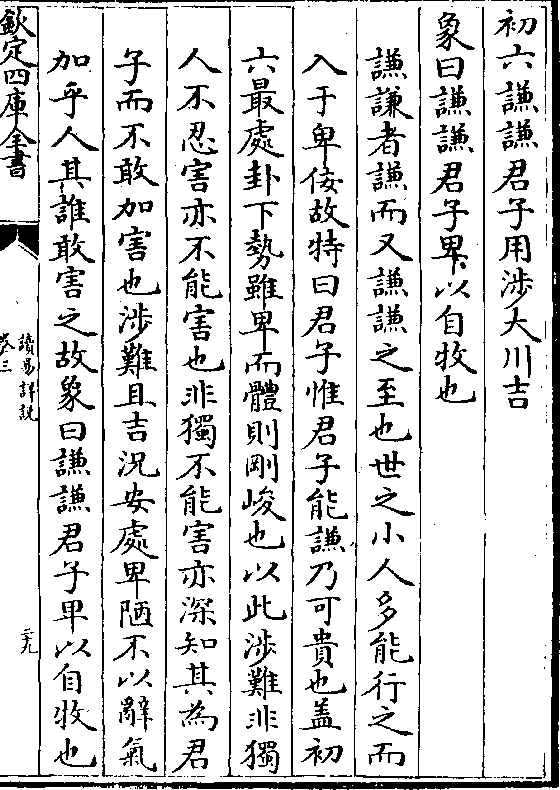 初六謙謙君子用涉大川吉
象曰謙謙君子卑以自牧也
謙謙者謙而又謙謙之至也世之小人多能行之而
入于卑佞故特曰君子惟君子能謙乃可貴也盖初
六最處卦下勢雖卑而體則剛峻也以此涉難非獨
人不忍害亦不能害也非獨不能害亦深知其為君
子而不敢加害也涉難且吉況安處卑陋不以辭氣
加乎人其誰敢害之故象曰謙謙君子卑以自牧也
欽定四庫全書
讀易詳說
卷三
二九